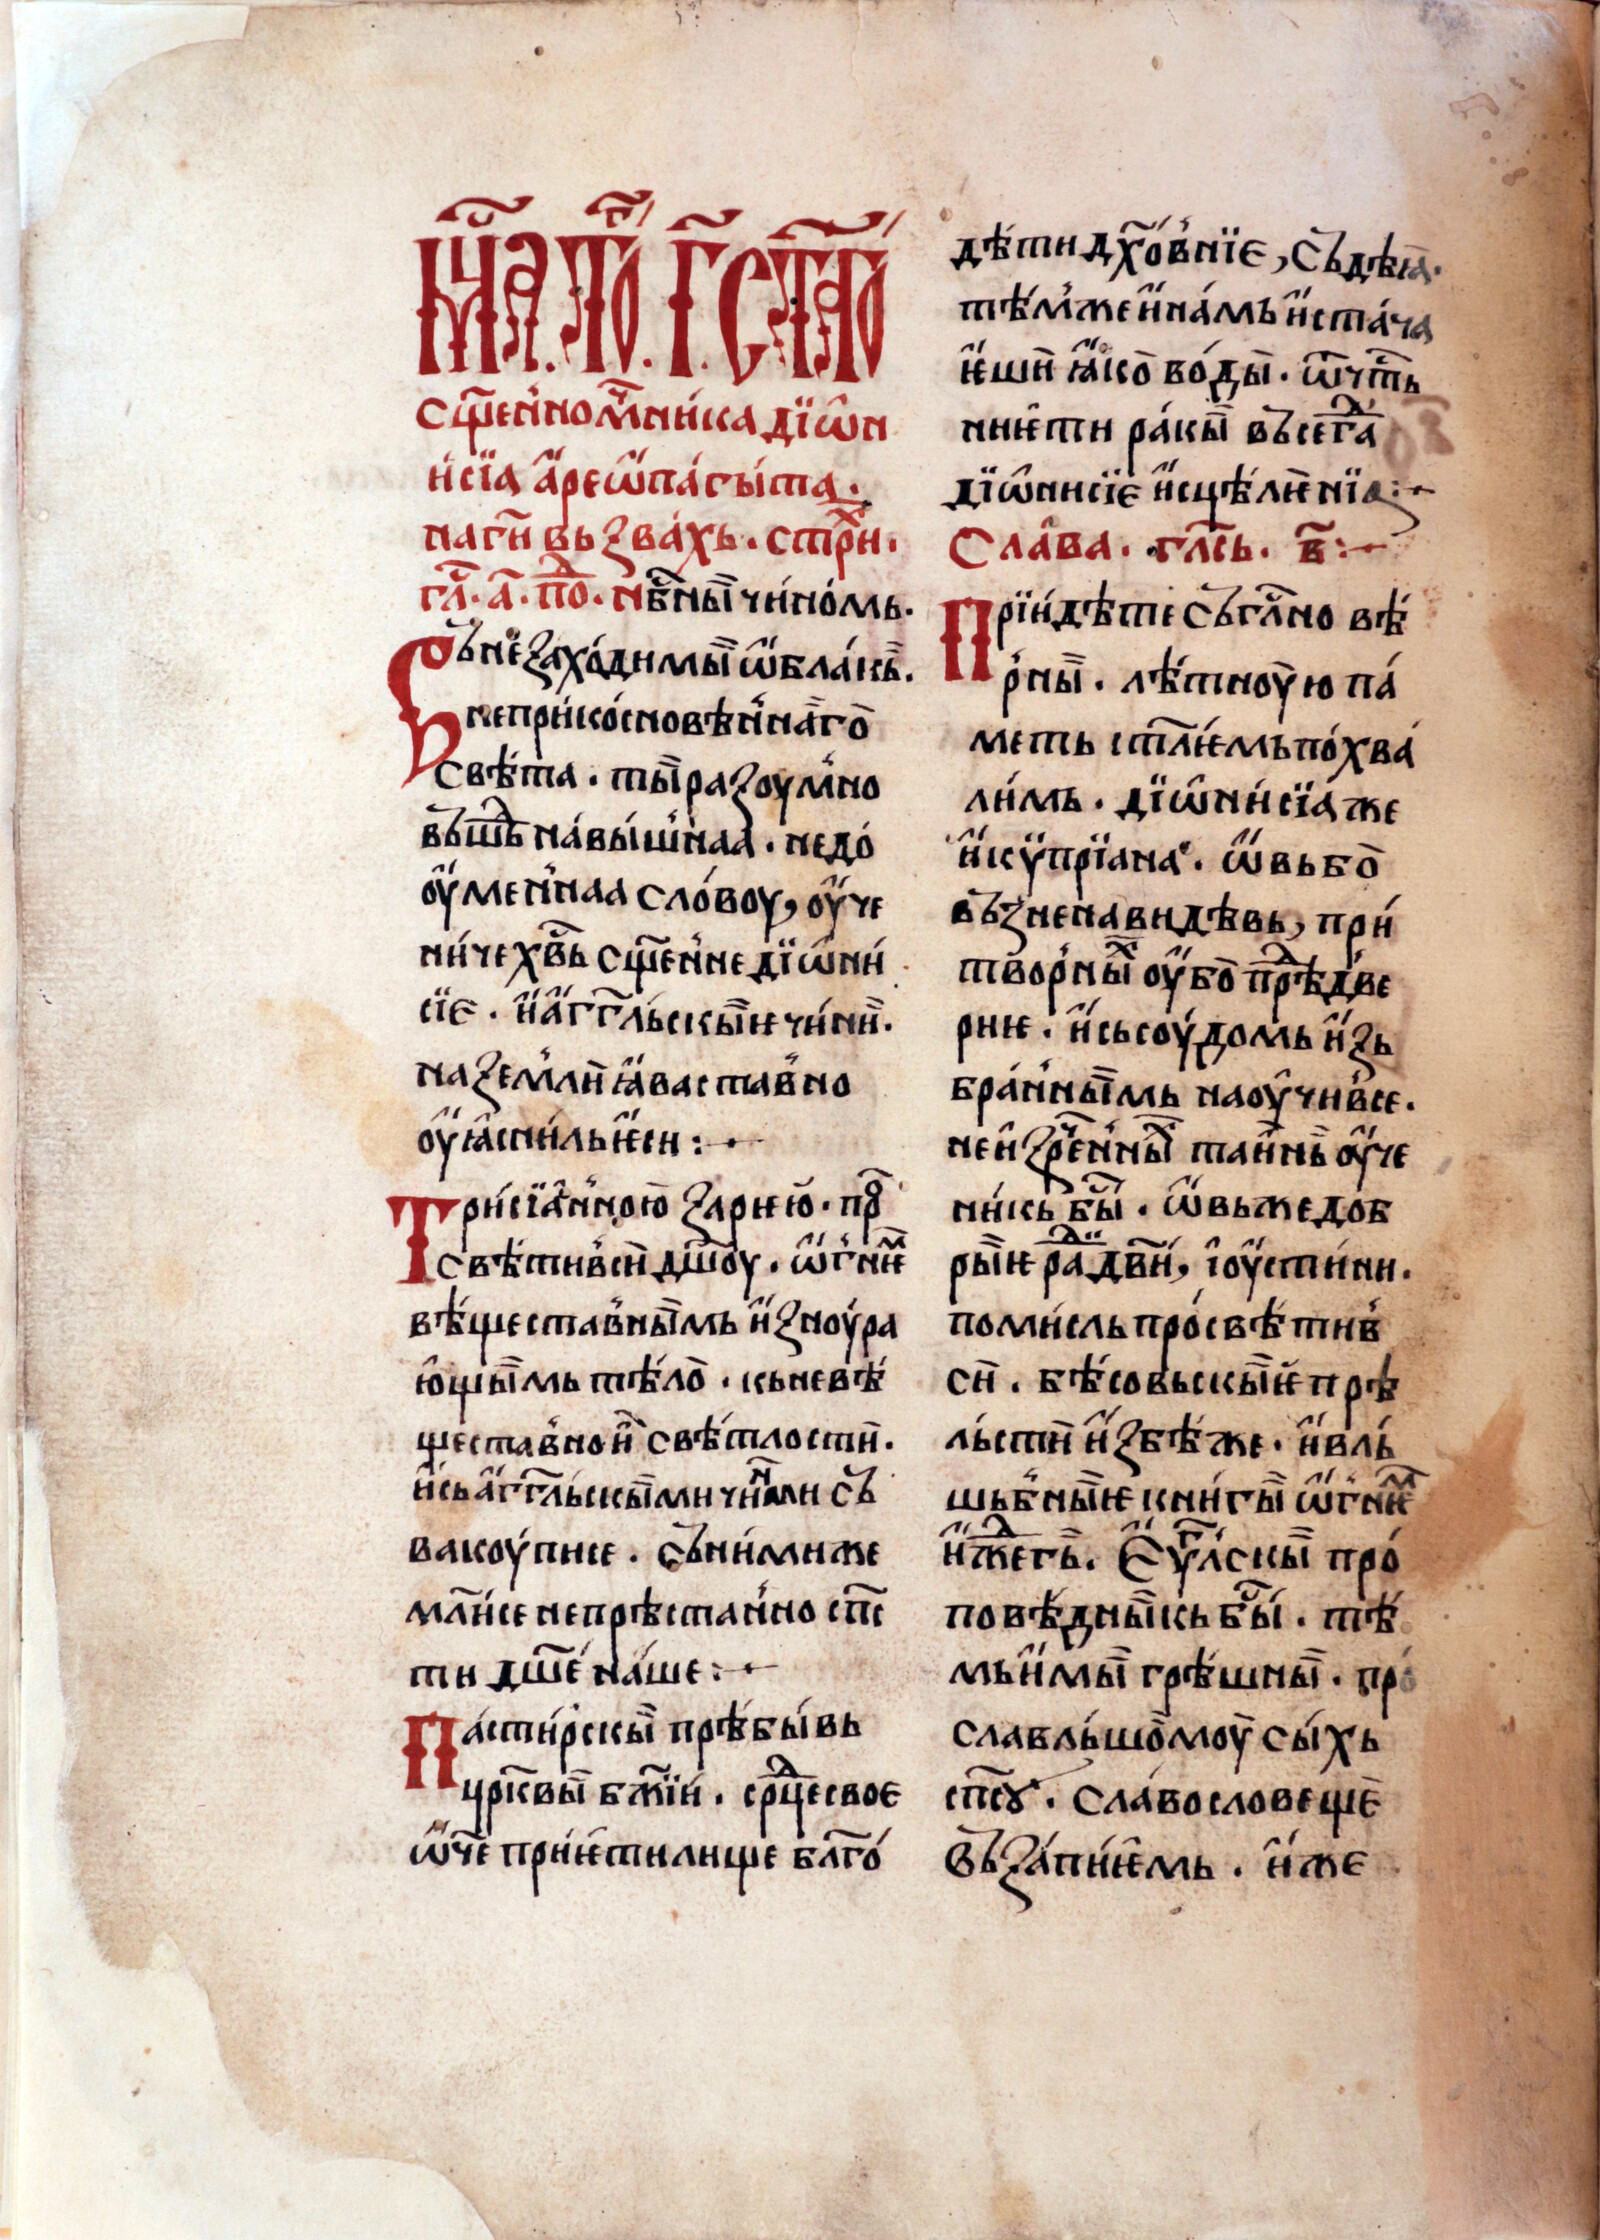 мц҃а. то҃. г҃. ст҃аго
сщ҃е́н̾номч҃ни́ка дїѡ̂н
и́сїа а҆́реѡ҆па́гы́та.
на г҃и вьзва́хь. стр҃и.
гл҃. а҃. по҃. нб҃ныӥ чи́но́мь.
Въ не́захо́димыӥ ѡ҆́блакь̀.
непри́ко́сновѣн̾на̀го̀
свѣ́та. тыӥ разоум̾но
въше́дь на́вы́ш̾наа. недо́
оу҆́мен̾наа сло́воу, оу҆́че
ни́че хв҃ь сщ҃ен̾не дїѡ̂ни́
сїе. и҆а҆́гг҃льскыӥѥ чи́ни̑.
на зем̾ли̑ ꙗ҆́вастав̾но
оу҆ꙗ҆сни́ль ѥ҆́си :·—
Три́сїа́н̾ною̀ зарѥю̀. про
свѣтив̾си̑ дш҃оу. ѡ҆́г̾нѥ́м
вѣ́щеставныӥмь и҆́зноу́ра
ю̂щыӥмь тѣ́ло̀. кь невѣ́
щеставноѝ свѣ́тлости̑.
и҆́сь а҆́гг҃льскыӥми чи́н̾ми съ
вакоу́писе. съни́миже
мл҃и́се непрѣстан̾но сп҃с
ти дш҃е́ на́ше :·—
Па́сти́рскыӥ прѣ́бы́вь
цр҃квыӥ бж҃їи́. ср҃це своє
ѡ҆́ч҃е при́ѥ҆тилище блг҃о́
дѣти дх҃о́внїє, съдѣꙗ.
тѣ́м̾же и҆ на́мь и҆́ста́ча
ѥ҆́ши̑ ꙗ҆́ко̀ во́ды̀. ѿ чт҃ь
нѥѥ̂ти ра́кыӥ въсегда́
дїѡ̂нисїє и҆сцѣ́лѥ̀нїа :·—
Сла̂ва. гла́сь. в҃ :·—
Прїи́дѣте съгла́но вѣ́
р̾ныӥ. лѣ́тноу̀ю па́
меть ст҃лѥ́мь по́хва́
ли́мь. дїѡ̂ни́сїа́же
и҆́ кѵ̈прїана. ѡ҆́вь бо̀
възненавидѣвь, при́
твор̾ныӥх оу҆́бо̀ прѣ́две
риѥ. и҆́сь соу́домь и҆́зь
бра́н̾ныӥмь наоу́чив̾се.
неи҆зре́чен̾ныӥх таи̂нь̀ оу҆́че
ни́кь бы́. ѡ҆́вь же доб
рыѥ ра́ди дв҃и́, і҆оу҆́сти́ни.
поми́сль про́свѣ́тив̾
си̑. бѣ́совьскыӥѥ прѣ
льсти̑ и҆́збѣ́же. и҆ влъ
шьб̾ныӥѥ кни́гыӥ ѡ҆́г̾нѥм
и҆́ждегь̀. Є҆ѵ҆́глскыӥ про́
по вѣ́дныӥкь бы́. тѣ́
мь и҆́ мыӥ грѣ́шныӥ. про́
славльшо̀моу̀ сы́хь
сп҃соу. славословещѐ
Въза́пи́ѥ҆мь. и҆́же